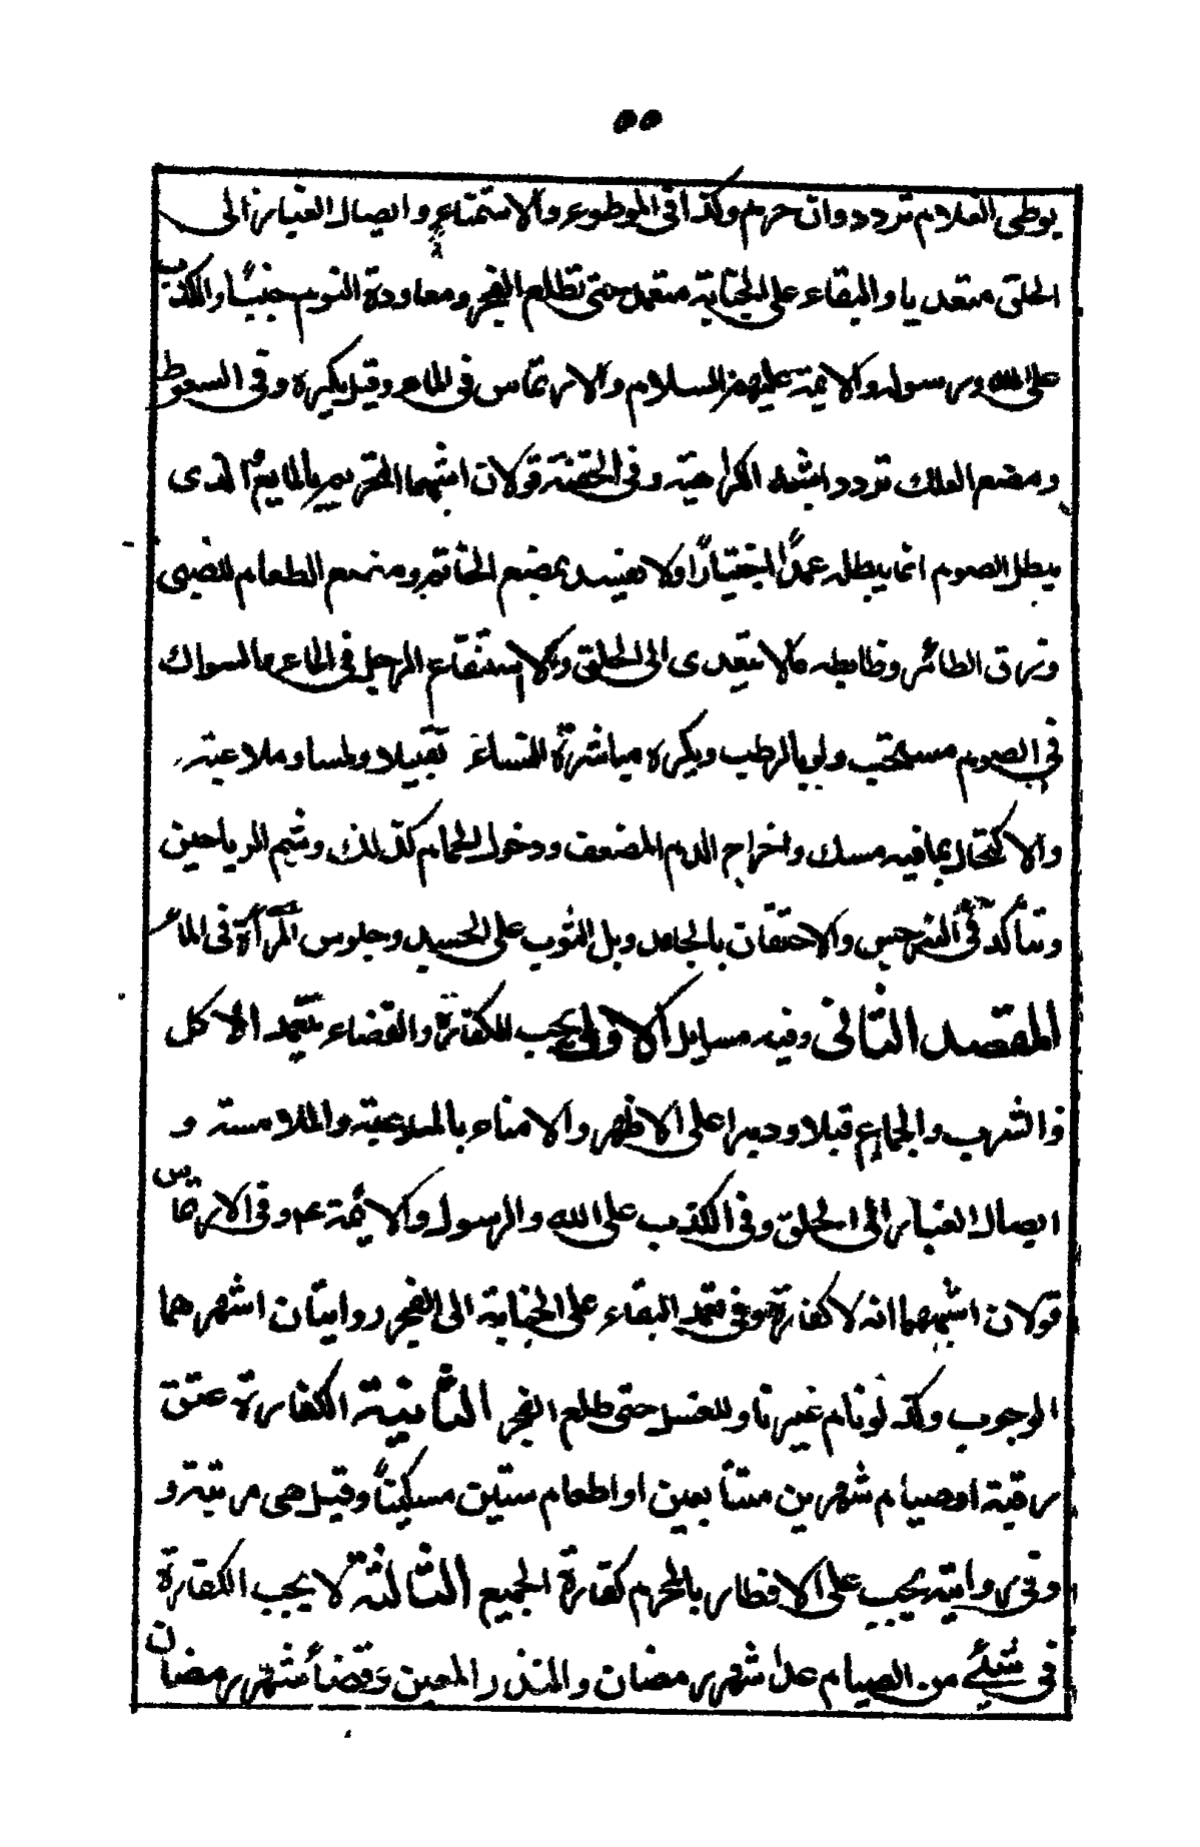 ٥٥
بوطى الغلام تردد وان حرم وكذا فى الموطوء والاستمتاع وايصال الغبار الى
الحلق متعديا والبقاء على الجنابة متعمدا حتى تطلع الفجر ومعاودة النوم جنبًا والكذب
على الله ورسوله والائمة عليهم السلام والارتماس فى الماء وقيل يكره وفى السعوط
ومضغ العلك تردد اشبه الكراهية وفى الحقنة قولان اشبهما التحريم بالمايع الذى
يبطل الصوم انما يبطله عمدًا اختيارًا ولا يفسد بمضغ الخاتم ومضغ الطعام للصبى
وزق الطائر وضابطه مالا يتعدى الى الحلق ولا استنقاع الرجل فى الماء والسواك
فى الصوم مستحب ولو بالرطب ويكره مباشرة النساء تقبيلا ولمسا وملاعبة
والاكتحال بما فيه مسك واخراج الدم المضعف ودخول الحمام كذلك وشم الرياحين
ويتأكد فى النرجس والاحتقان بالجامد وبل الثوب على الجسد وجلوس المرأة فى الماء
المقصد الثانى وفيه مسايل الاولى يجب الكفارة والقضاء بتعمد الاكل
والشرب والجماع قبلا ودبرا على الاظهر والامناء بالملاعبة والملامسة و
ايصال الغبار الى الحلق وفى الكذب على الله والرسول والائمة ع م وفى الارتماس
قولان اشبههما انه لا كفارة وفى تعمد البقاء على الجنابة الى الفجر روايتان اشهرهما
الوجوب وكذا لو نام غير ناو للغسل حتى طلع الفجر الثانية الكفارة عتق
رقبة او صيام شهرين متتابعين او اطعام ستين مسكينًا وقيل هى مرتبة و
وفى رواية يجب على الافطار بالمحرم كفارة الجمع الثالثة لا يجب الكفارة
فى شئ من الصيام عدا شهر رمضان والنذر المعين وقضاء شهر رمضان